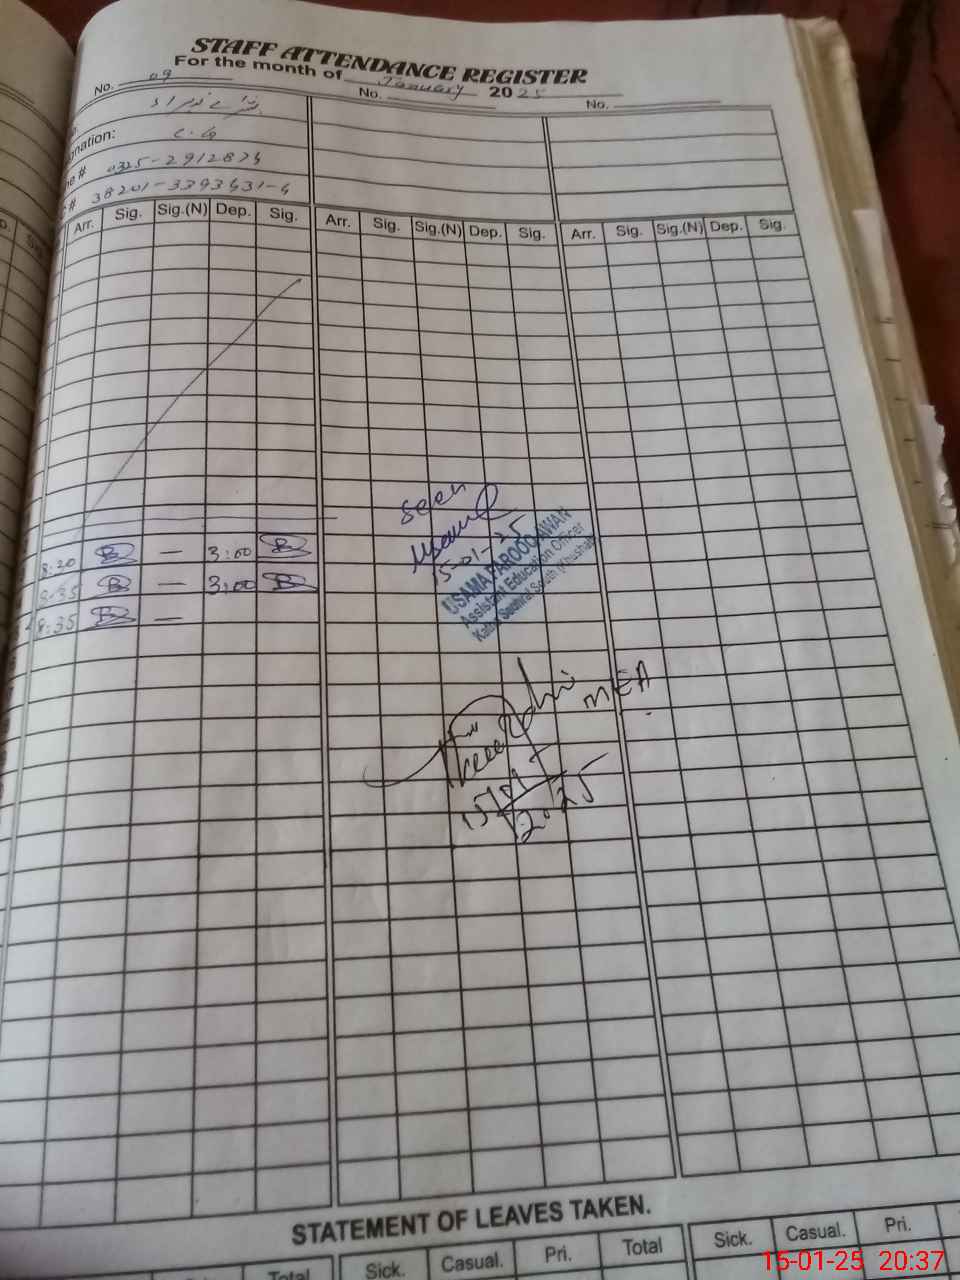 STAFF ATTENDANCE REGISTER
For the month of January 2025
No. 09 No. No.
gnation: C.G
ne # 0325-2912874
# 38201-3393431-4
Arr. Sig. Sig.(N) Dep. Sig. Arr. Sig. Sig.(N) Dep. Sig. Arr. Sig. Sig.(N) Dep. Sig.
Seen
15-01-25
USAMA FAROOQ AWAN
Assistant Education Officer
8:20 — 3:00
8:35 — 3:00
8:35 —
MEA
15/01/2025
STATEMENT OF LEAVES TAKEN.
Total Sick. Casual. Pri. Total Sick. Casual. Pri.
15-01-25 20:37